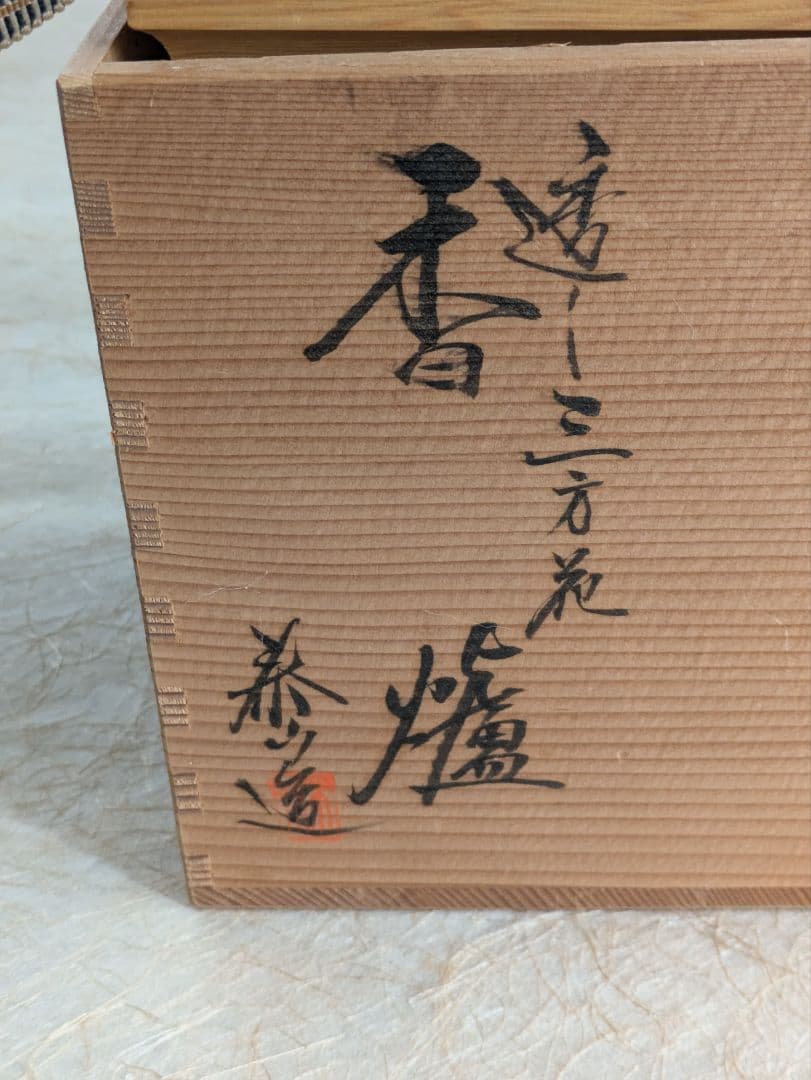 透し三方花
香爐
泰山造